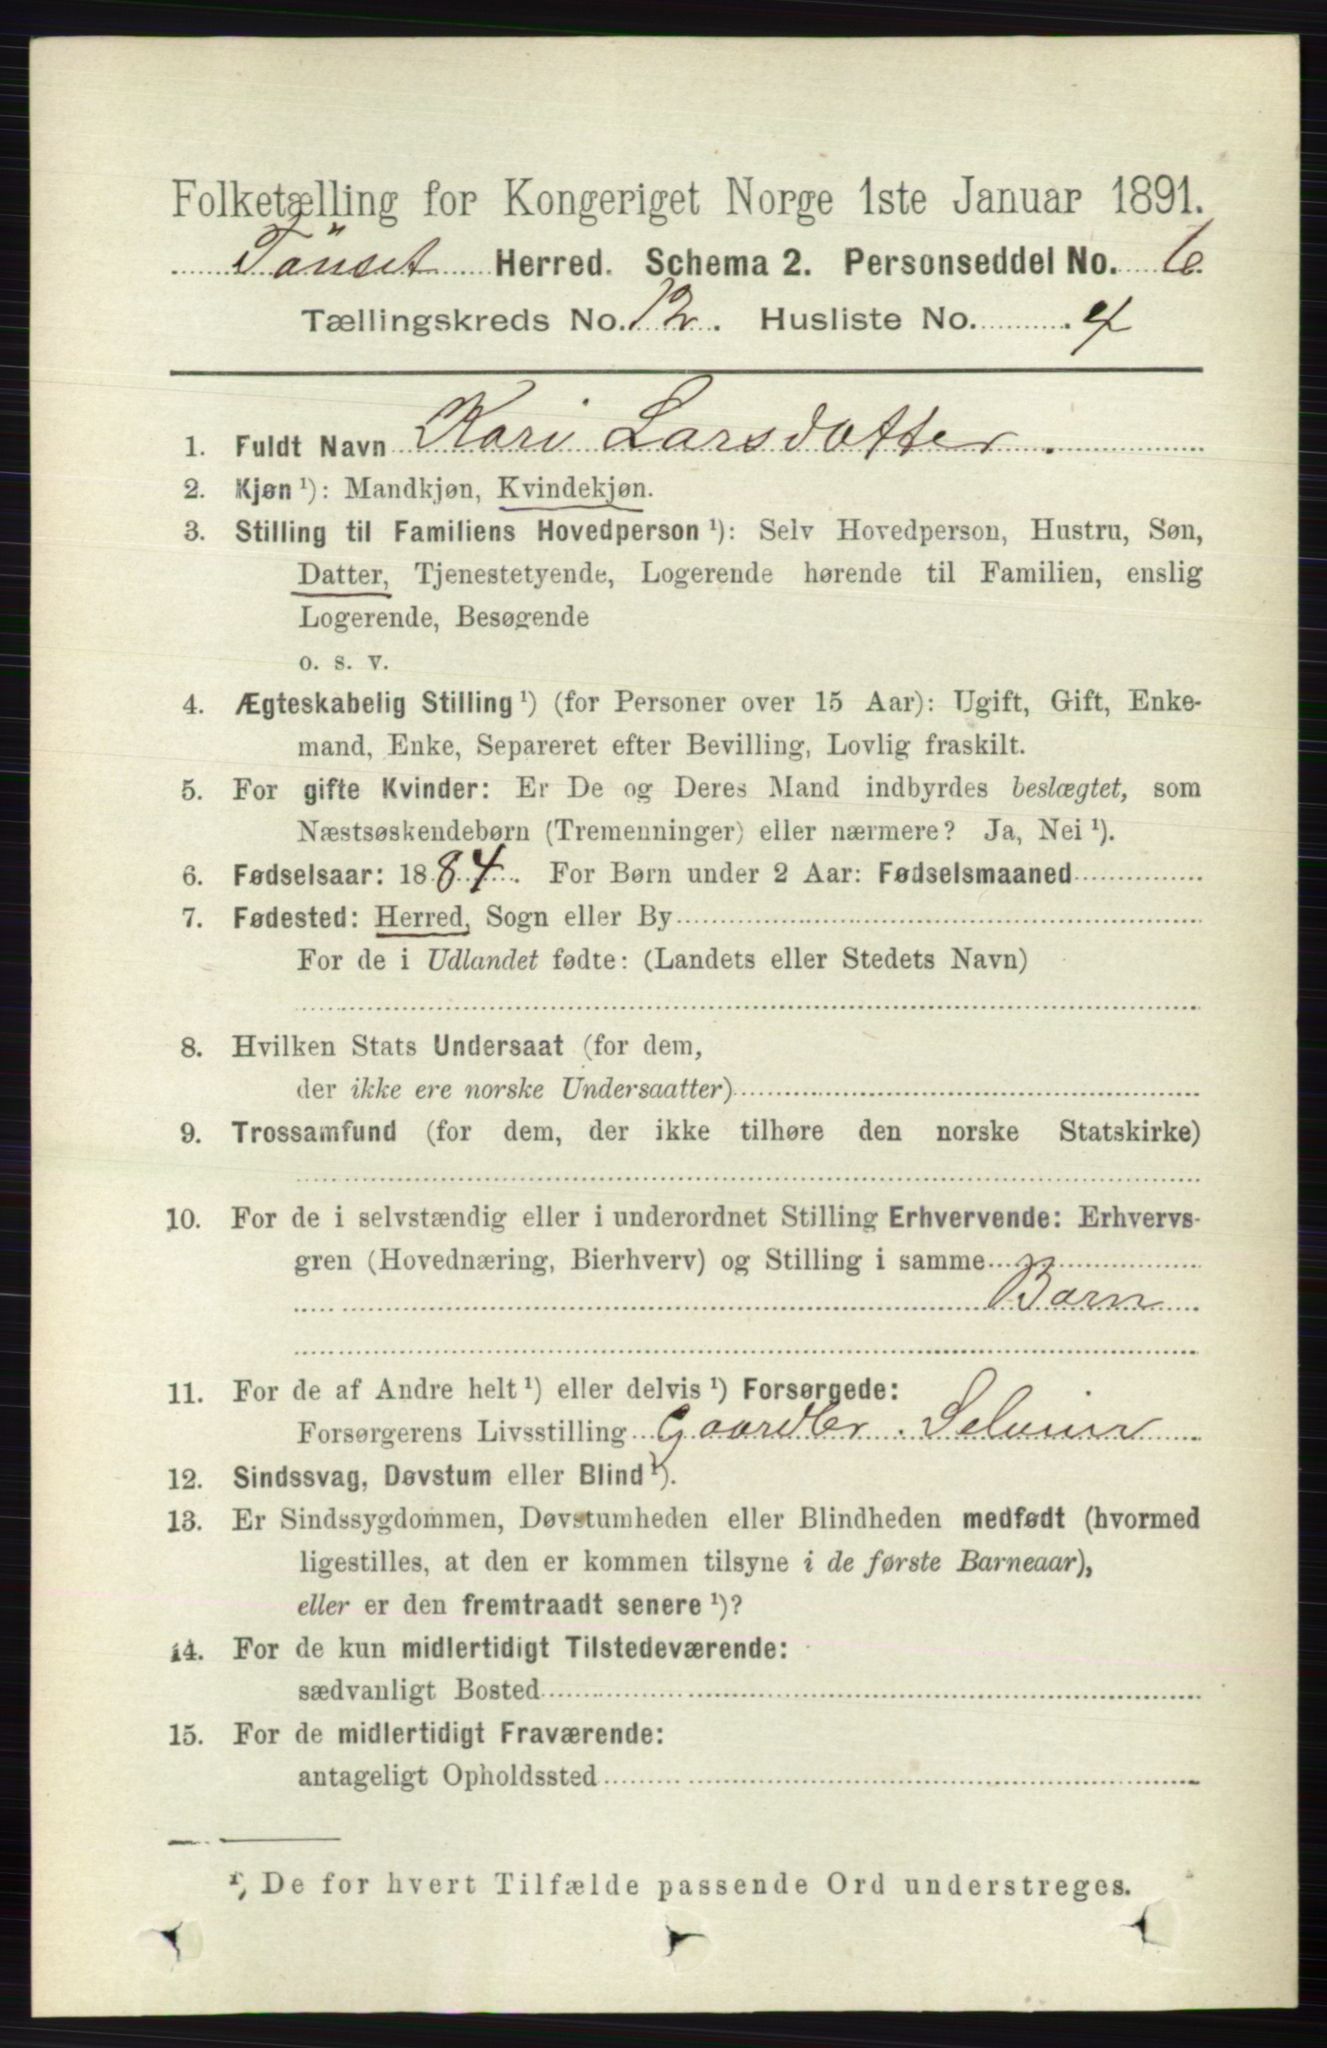 Folketælling for Kongeriget Norge 1ste Januar 1891.
Tönset Herred. Schema 2. Personseddel No. 6
Tællingskreds No. 12. Husliste No. 4
1. Fuldt Navn Kari Larsdatter.
2. Kjøn ¹): Mandkjøn, Kvindekjøn.
3. Stilling til Familiens Hovedperson ¹): Selv Hovedperson, Hustru, Søn,
Datter, Tjenestetyende, Logerende hørende til Familien, enslig
Logerende, Besøgende
o. s. v.
4. Ægteskabelig Stilling ¹) (for Personer over 15 Aar): Ugift, Gift, Enke-
mand, Enke, Separeret efter Bevilling, Lovlig fraskilt.
5. For gifte Kvinder: Er De og Deres Mand indbyrdes beslægtet, som
Næstsøskendebørn (Tremenninger) eller nærmere? Ja, Nei ¹).
6. Fødselsaar: 1884. For Børn under 2 Aar: Fødselsmaaned
7. Fødested: Herred, Sogn eller By
For de i Udlandet fødte: (Landets eller Stedets Navn)
8. Hvilken Stats Undersaat (for dem,
der ikke ere norske Undersaatter)
9. Trossamfund (for dem, der ikke tilhøre den norske Statskirke)
10. For de i selvstændig eller i underordnet Stilling Erhvervende: Erhvervs-
gren (Hovednæring, Bierhverv) og Stilling i samme
Barn
11. For de af Andre helt ¹) eller delvis ¹) Forsørgede:
Forsørgerens Livsstilling Gaardbr. Seleier
12. Sindssvag, Døvstum eller Blind ¹).
13. Er Sindssygdommen, Døvstumheden eller Blindheden medfødt (hvormed
ligestilles, at den er kommen tilsyne i de første Barneaar),
eller er den fremtraadt senere ¹)?
14. For de kun midlertidigt Tilstedeværende:
sædvanligt Bosted
15. For de midlertidigt Fraværende:
antageligt Opholdssted
¹) De for hvert Tilfælde passende Ord understreges.